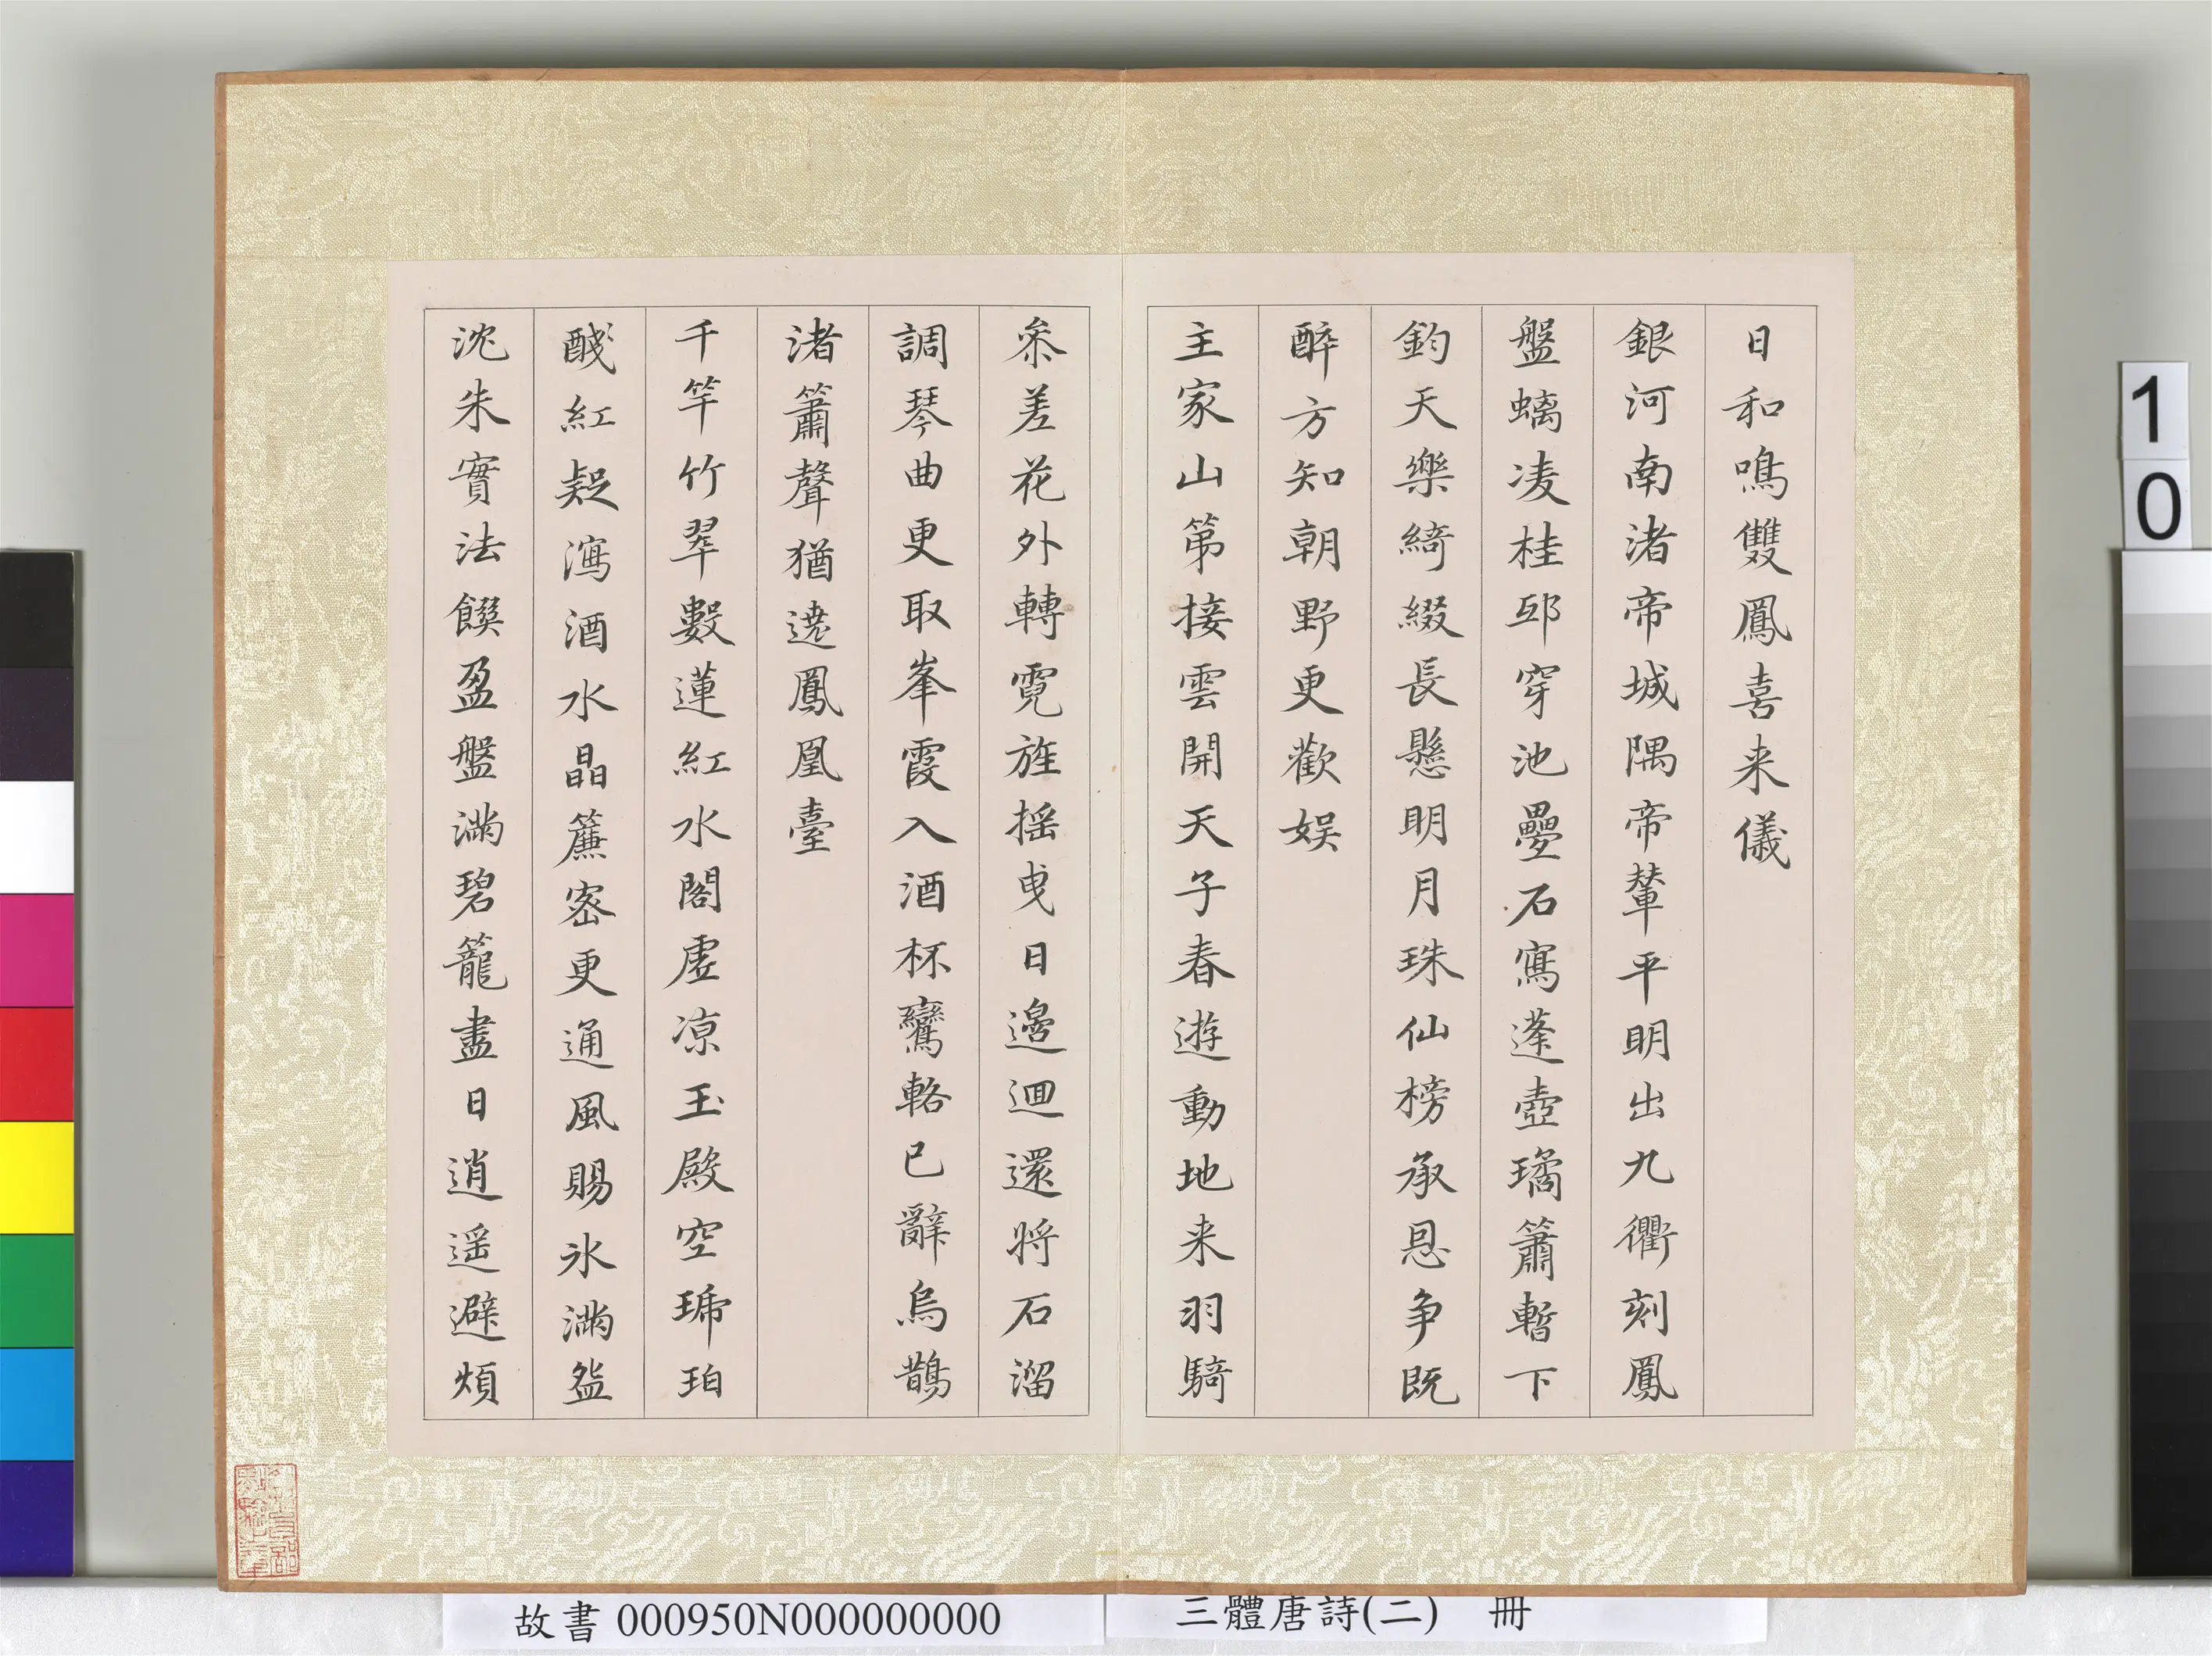 日和鳴雙鳳喜来儀
銀河南渚帝城隅帝輦平明出九衢刻鳳
盤螭凌桂邸穿池疊石寫蓬壺瑤簫暫下
鈞天樂綺綴長懸明月珠仙榜承恩争既
醉方知朝野更歡娱
主家山第接雲開天子春遊動地来羽騎
叅差花外轉霓旌摇曳日邊迴還将石溜
調琴曲更取峯霞入酒杯鸞輅已辭烏鵲
渚簫聲猶遶鳳凰臺
千竿竹翠數蓮紅水閣虛凉玉殿空琥珀
醆紅疑瀉酒水晶簾密更通風賜氷滿盌
沈朱實法饌盈盤滿碧籠盡日逍遥避煩
故書 000950N000000000
三體唐詩(二) 冊
1
0